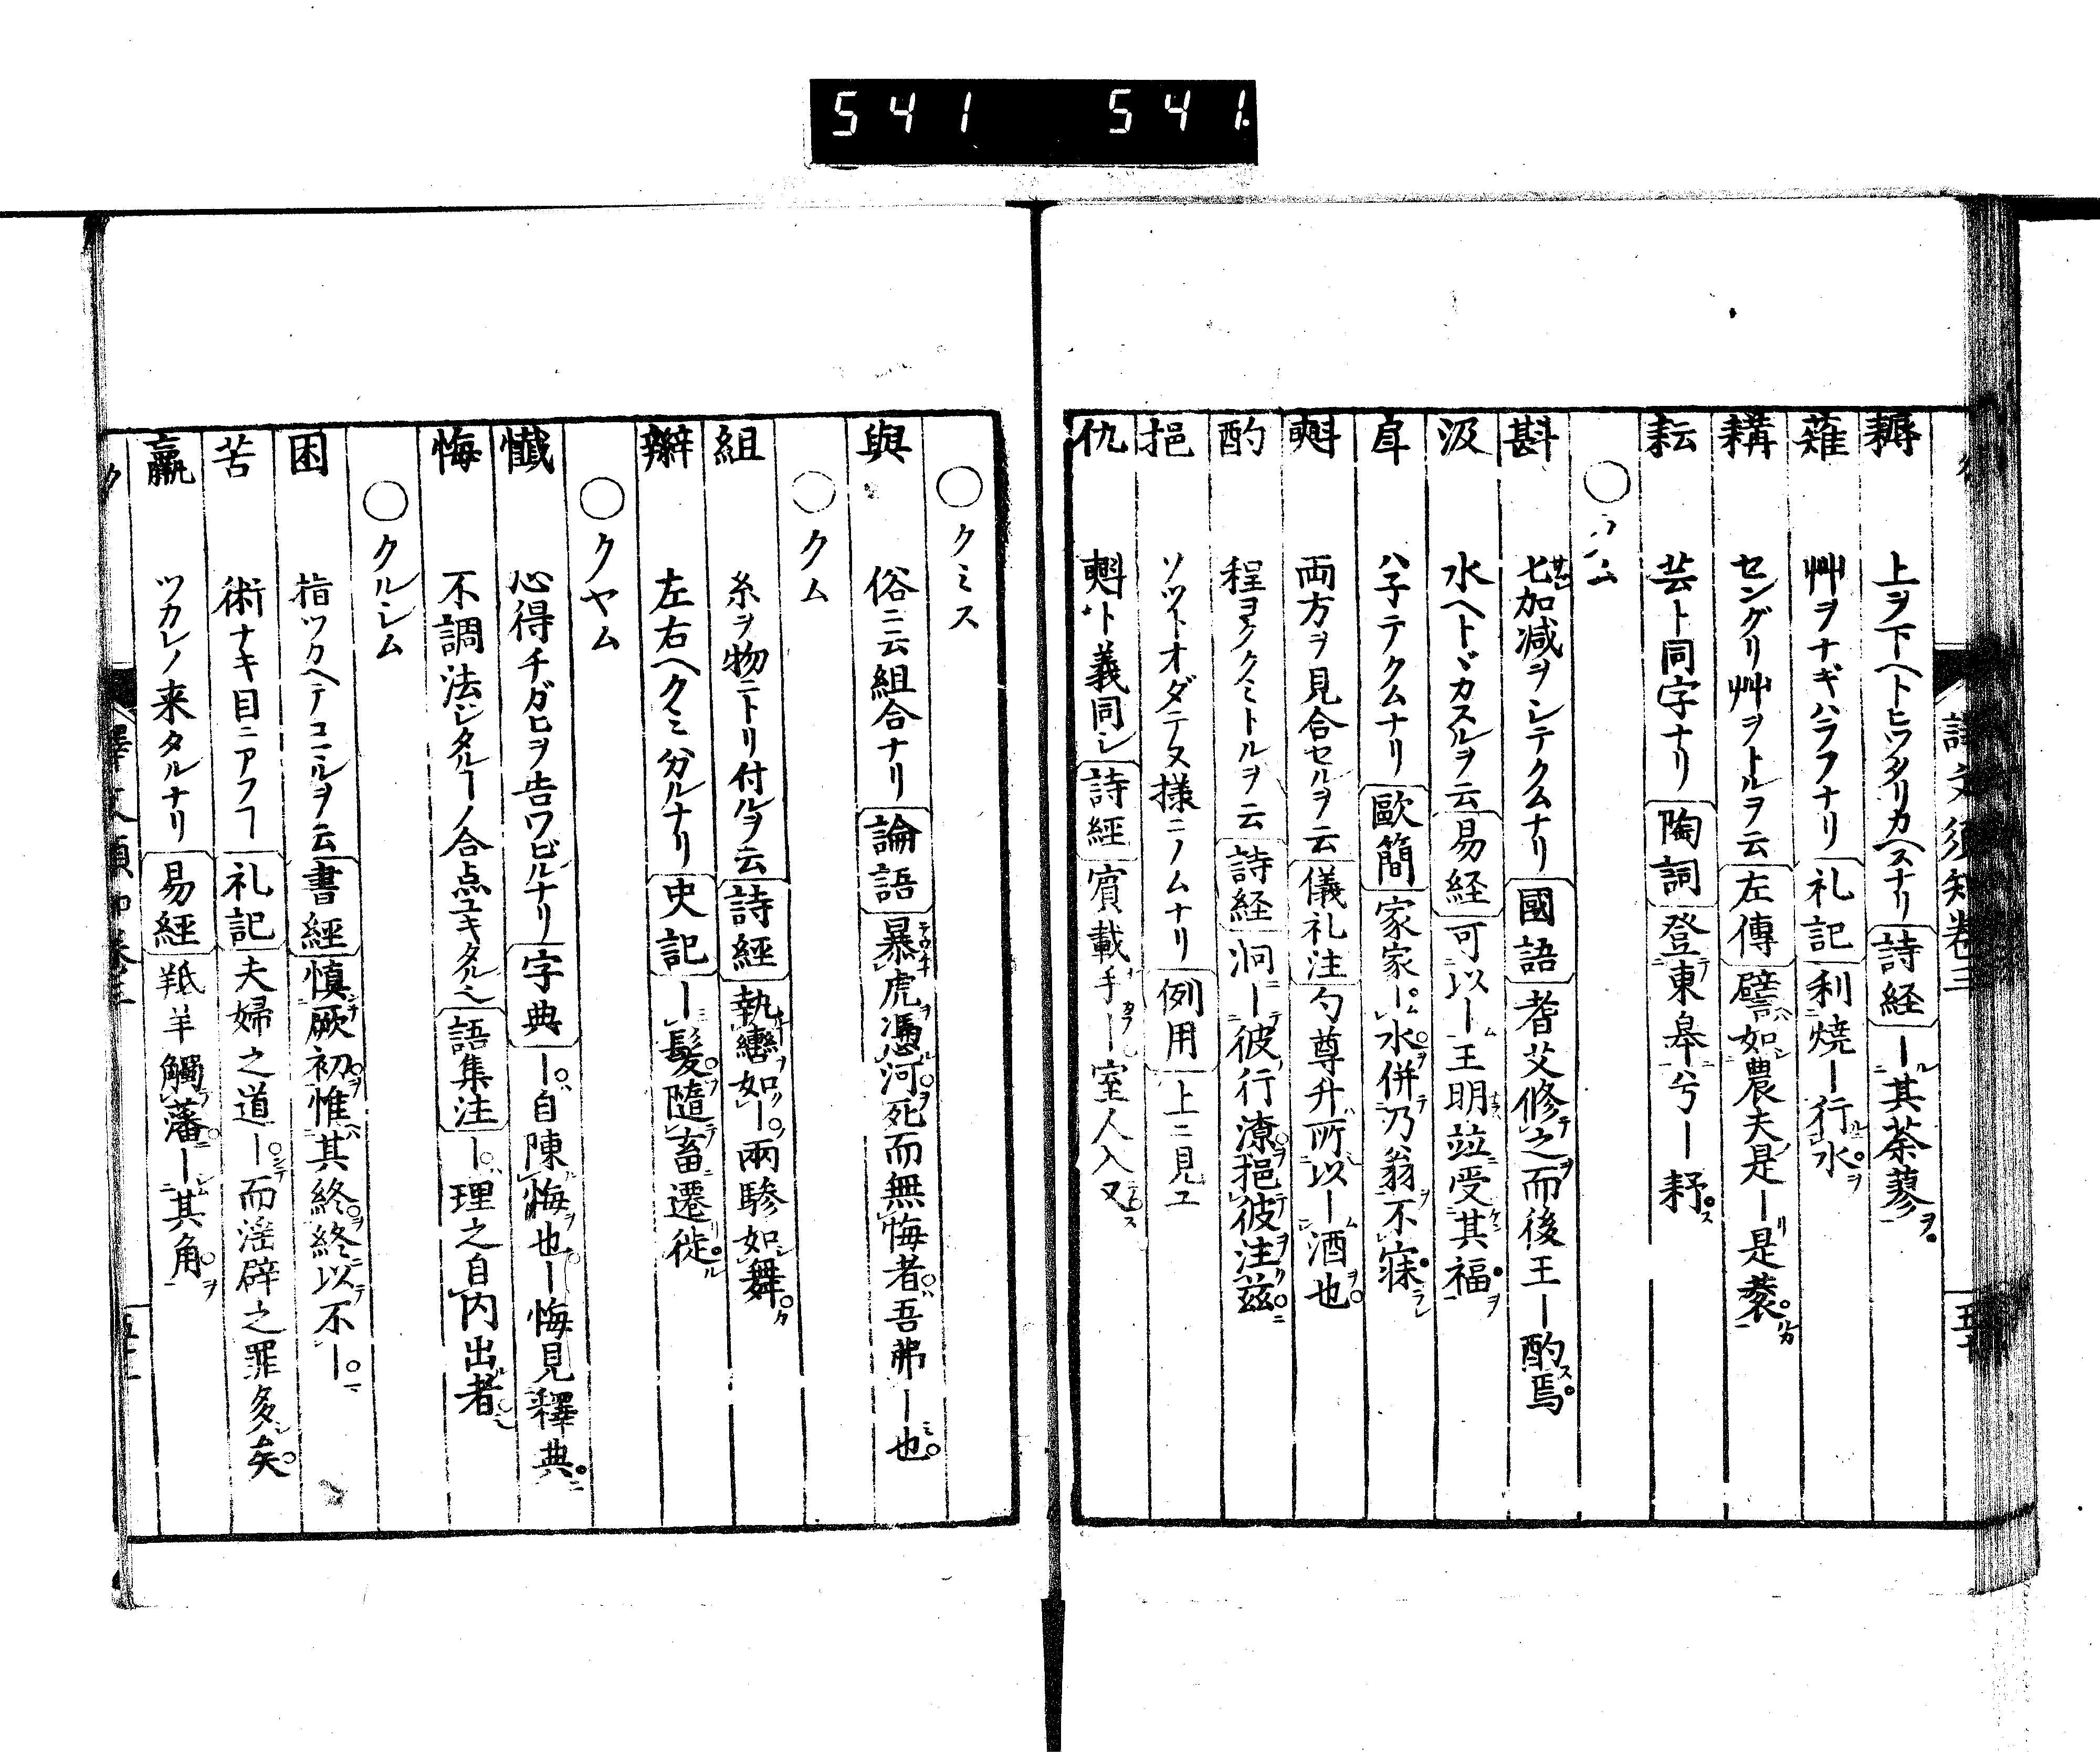 541 541
譯文須知卷三
耨 上ヲ下ヘトヒツクリカヘスナリ 詩経 ー其荼蓼
薙 艸ヲナギハラフナリ 礼記 利燒ー行水
耩 センクリ艸ヲトルヲ云 左傳 譬如農夫是ー是蓘
耘 芸ト同字ナリ 陶詞 登東皋兮ー耔
○クム
斟 七加减ヲシテクムナリ 國語 耆艾修之而後王ー酌焉
汲 水ヘトヾカスルヲ云 易経 可以ー王明竝受其福
戽 ハ子テクムナリ 歐簡 家家ー水併乃翁不寐
㪺 両方ヲ見合セルヲ云 儀礼注 勺尊升所以ー酒也
酌 程ヨククミトルヲ云 詩経 泂ー彼行潦挹彼注茲
挹 ソツトオダテヌ様ニノムナリ 例用 上ニ見ユ
仇 㪺ト義同シ 詩經 賓載手ー室人入又
○クミス
與 俗ニ云組合ナリ 論語 暴虎憑河死而無悔者吾弗ー也
○クム
組 糸ヲ物ニトリ付ルヲ云 詩經 執轡如ー兩驂如舞
辮 左右ヘクミ分ルナリ 史記 ー髮隨畜遷徙
○クヤム
懺 心得チガヒヲ告ワビルナリ 字典 ー自陳悔也ー悔見釋典
悔 不調法シタルーノ合点ユキタル也 語集注 ー理之自內出者
○クルシム
困 指ツカヘテコマルヲ云 書經 慎厥初惟其終終以不ー
苦 術ナキ目ニアフヿ 礼記 夫婦之道ー而淫辟之罪多矣
羸 ツカレノ来タルナリ 易經 羝羊觸藩ー其角